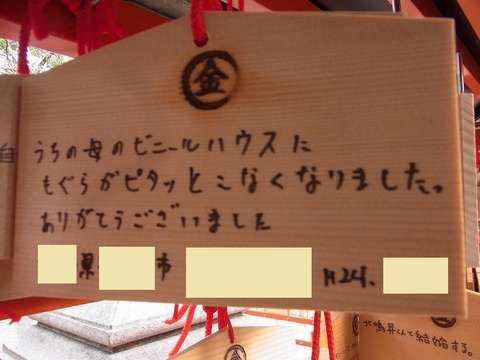 金
うちの母のビニールハウスに
もぐらがピタッとこなくなりました。
ありがとうございました
県 市 H24.
て結婚する。